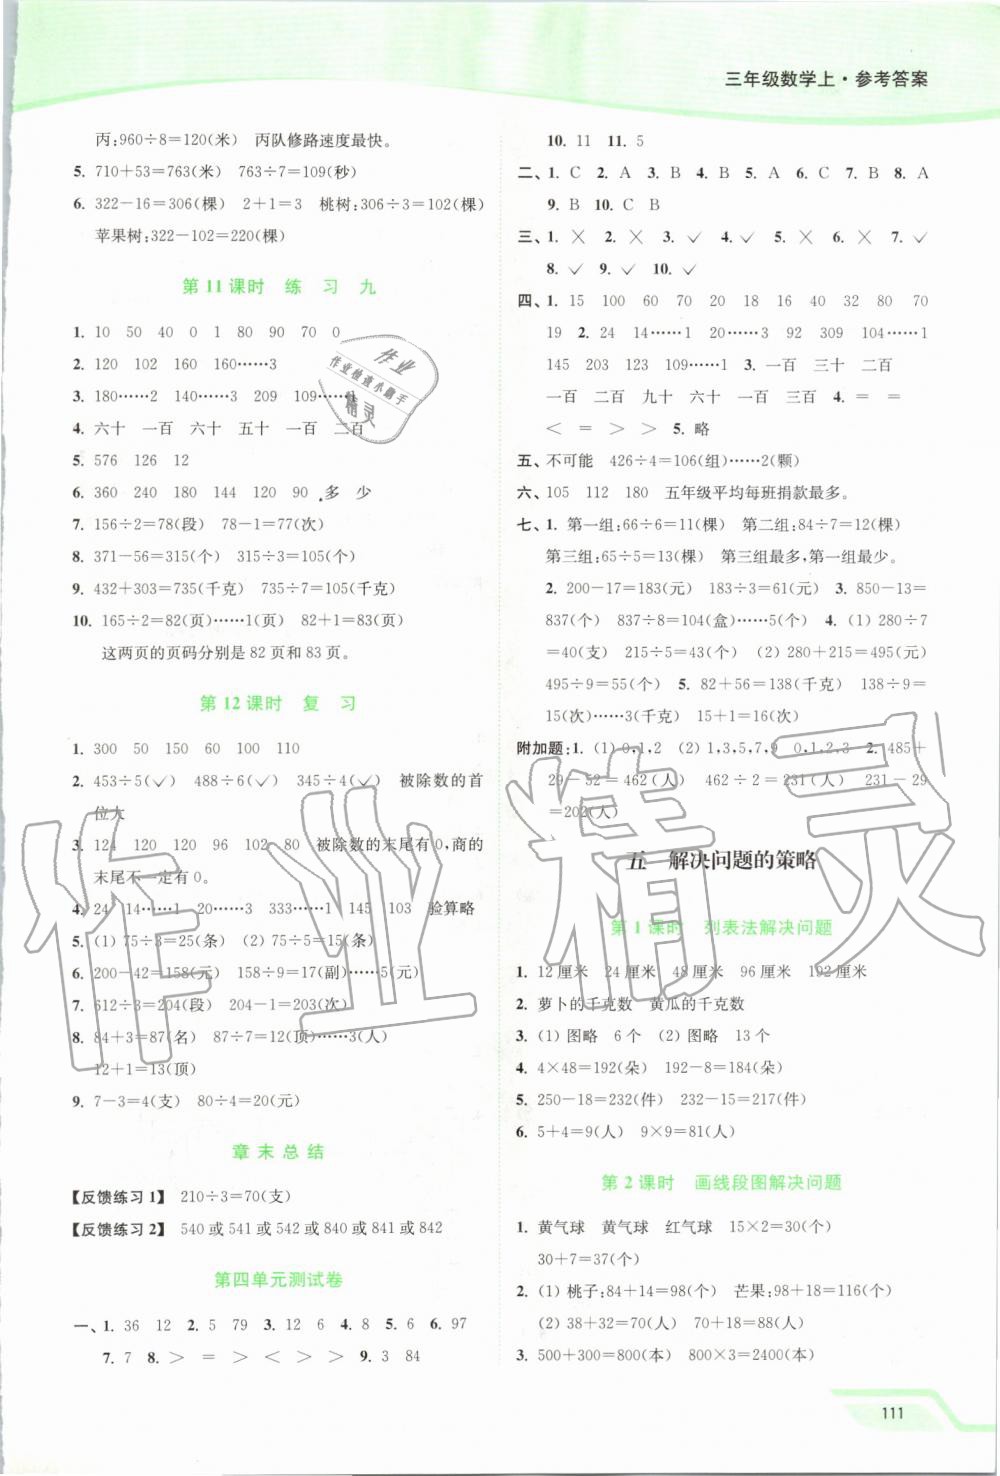 三年级数学上·参考答案
丙:960÷8=120(米)　丙队修路速度最快。
5. 710+53=763(米)　763÷7=109(秒)
6. 322-16=306(棵)　2+1=3　桃树:306÷3=102(棵)
苹果树:322-102=220(棵)
第11课时　练　习　九
1. 10　50　40　0　1　80　90　70　0
2. 120　102　160　160……3
3. 180……2　140……3　209　109……1
4. 六十　一百　六十　五十　一百　二百
5. 576　126　12
6. 360　240　180　144　120　90　多　少
7. 156÷2=78(段)　78-1=77(次)
8. 371-56=315(个)　315÷3=105(个)
9. 432+303=735(千克)　735÷7=105(千克)
10. 165÷2=82(页)……1(页)　82+1=83(页)
这两页的页码分别是 82 页和 83 页。
第12课时　复　习
1. 300　50　150　60　100　110
2. 453÷5(✓)　488÷6(✓)　345÷4(✓)　被除数的首
位大
3. 124　120　120　96　102　80　被除数的末尾有0,商的
末尾不一定有0。
4. 24　14……1　20……3　333……1　145　103　验算略
5. (1) 75÷3=25(条)　(2) 75÷5=15(条)
6. 200-42=158(元)　158÷9=17(副)……5(元)
7. 612÷3=204(段)　204-1=203(次)
8. 84+3=87(名)　87÷7=12(顶)……3(人)
12+1=13(顶)
9. 7-3=4(支)　80÷4=20(元)
章末总结
【反馈练习1】　210÷3=70(支)
【反馈练习2】　540 或 541 或 542 或 840 或 841 或 842
第四单元测试卷
一、1. 36　12　2. 5　79　3. 12　6　4. 8　5. 6　6. 97
7. 7　8. >　=　>　<　>　>　9. 3　84
10. 11　11. 5
二、1. C　2. A　3. B　4. B　5. A　6. B　7. B　8. A
9. B　10. C　B
三、1. ×　2. ×　3. ✓　4. ✓　5. ×　6. ×　7. ✓
8. ✓　9. ✓　10. ✓
四、1. 15　100　60　70　20　16　40　32　80　70
19　2. 24　14……1　20……3　92　309　104……1
145　203　123　109……1　3. 一百　三十　二百
一百　二百　九十　六十　一百　四百　4. =　=
<　=　>　>　5. 略
五、不可能　426÷4=106(组)……2(颗)
六、105　112　180　五年级平均每班捐款最多。
七、1. 第一组:66÷6=11(棵)　第二组:84÷7=12(棵)
第三组:65÷5=13(棵)　第三组最多,第一组最少。
2. 200-17=183(元)　183÷3=61(元)　3. 850-13=
837(个)　837÷8=104(盒)……5(个)　4. (1) 280÷7
=40(支)　215÷5=43(支)　(2) 280+215=495(元)
495÷9=55(个)　5. 82+56=138(千克)　138÷9=
15(次)……3(千克)　15+1=16(次)
附加题:1. (1) 0,1,2　(2) 1,3,5,7,9　0,1,2,3　2. 485+
29-52=462(人)　462÷2=231(人)　231-29
=202(人)
五　解决问题的策略
第1课时　列表法解决问题
1. 12厘米　24厘米　48厘米　96厘米　192厘米
2. 萝卜的千克数　黄瓜的千克数
3. (1) 图略　6个　(2) 图略　13个
4. 4×48=192(朵)　192-8=184(朵)
5. 250-18=232(件)　232÷2=116(件)
6. 5+4=9(人)　9×9=81(人)
第2课时　画线段图解决问题
1. 黄气球　黄气球　红气球　15×2=30(个)
30+7=37(个)
2. (1) 桃子:84+14=98(个)　芒果:98+18=116(个)
(2) 38+32=70(人)　70+18=88(人)
3. 500+300=800(本)　800×3=2400(本)
111
作业
作业检查小助手
精灵
作业精灵